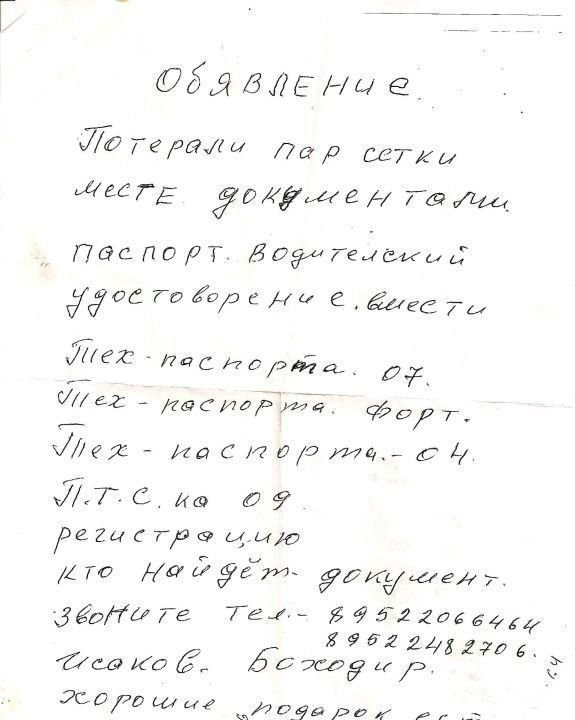 Обявление.
Потерали пар сетки
месте. документами.
паспорт. Водителский
удостоворение. вмести
Тех-паспорта. 07.
Тех-паспорта. форт.
Тех-паспорта.-04.
П.Т.С. на 09.
регистрацию
кто найдёт- документ.
звоните тел.- 89522066464
89522482706.
исаков. Боходир.
хорошие подарок